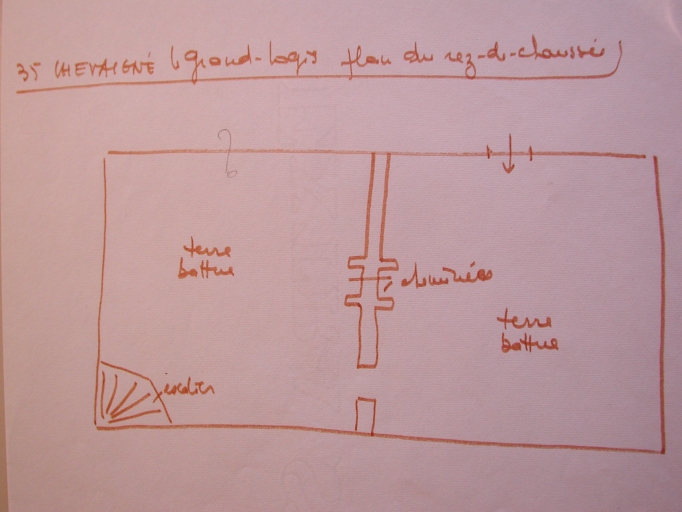 35 CHEVAIGNÉ (grand-logis plan du rez-de-chaussée)
terre
battue
cheminées
terre
battue
escalier